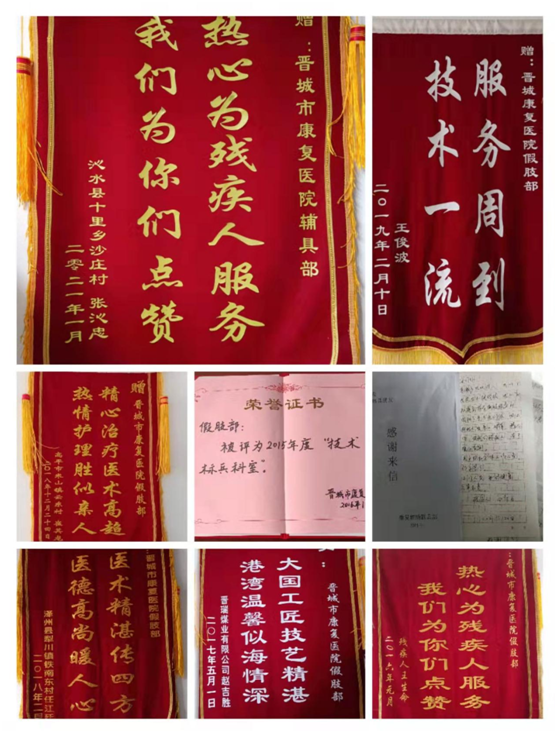 赠：晋城市康复医院辅具部
热心为残疾人服务
我们为你们点赞
沁水县十里乡沙庄村 张沁忠
二零二一年一月
赠：晋城市康复医院假肢部
服务周到
技术一流
王俊波
二〇一九年二月十日
赠 晋城市康复医院假肢部
精心治疗医术高超
热情护理胜似亲人
二〇一八年十二月二十四日
荣誉证书
假肢部：
被评为2015年度“技术
标兵科室”。
晋城市康复
感谢来信
晋城市康复医院假肢部
医术精湛传四方
医德高尚暖人心
泽州县犁川镇铁南东村任江
二〇一八年二
晋城市康复医院假肢部
大国工匠技艺精湛
港湾温馨似海情深
晋瑞煤业有限公司赵吉胜
二〇一七年五月一日
：晋城市康复医院假肢部
热心为残疾人服务
我们为你们点赞
残疾人王生命
二〇一六年元月